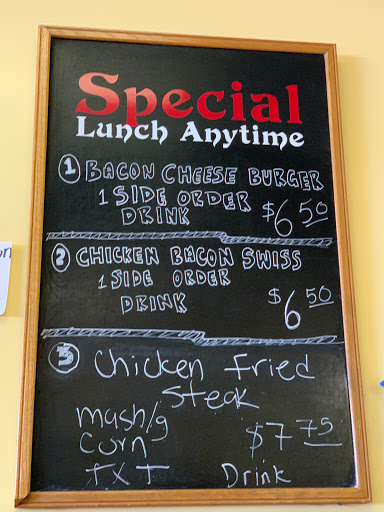 Special
Lunch Anytime
1 BACON CHEESE BURGER
1 SIDE ORDER
DRINK $6 50
2 CHICKEN BACON SWISS
1 SIDE ORDER
DRINK $6 50
3 Chicken Fried
Steak
mash/g
corn $7 75
TXT Drink